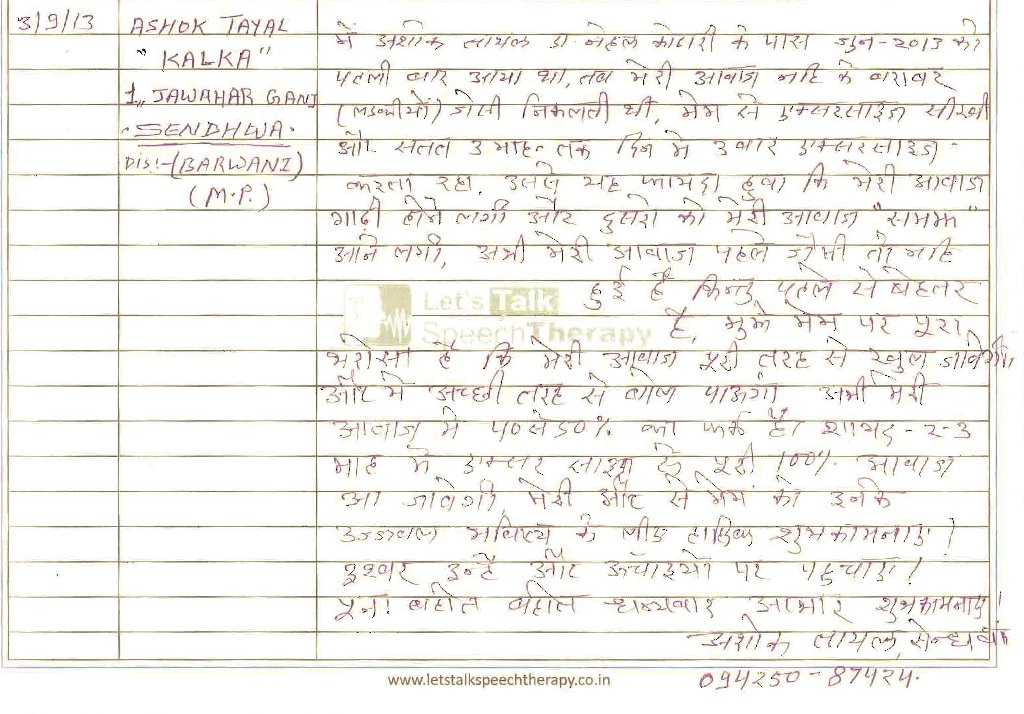 3/9/13
ASHOK TAYAL
"KALKA"
1,, JAWAHAR GANJ
SENDHWA.
Dis:-(BARWANI)
(M.P.)
में अशोक तायल डा. नेहल कोटारी के पास जुन-2013 को
पहली बार आया था, तब मेरी आवाज नहि के बराबर
(लडकीयों) जेसी निकलती थी, मेम से एक्सरसाइज सीखी
और सतत 3 माह तक दिन मे 3 बार एक्सरसाइज
करता रहा, उससे यह फायदा हुवा कि मेरी आवाज
गाढ़ी होने लगी और दुसरो को मेरी आवाज "समझ"
आने लगी, अभी मेरी आवाज पहले जैसी तो नहि
हुई है किन्तु पहले से बेहतर
है, मुझे मेम पर पूरा
भरोसा है कि मेरी आवाज पूरी तरह से खुल जावेगी,
और मे अच्छी तरह से बोल पाऊंगा अभी मेरी
आवाज मे 40 से 50% का फर्क है। शायद - 2-3
माह मे एक्सर साइज से पूरी 100% आवाज
आ जावेगी, मेरी और से मेम को इनके
उज्जवल भविष्य के लीए हार्दिक शुभकामनाए!
इश्वर इन्हे और ऊंचाइयो पर पहुचाए!
पून: बहोत बहोत धन्यवाद आभार शुभकामनाए!
अशोक तायल, सेन्धवा
094250-87424.
Let's Talk
SpeechTherapy
www.letstalkspeechtherapy.co.in